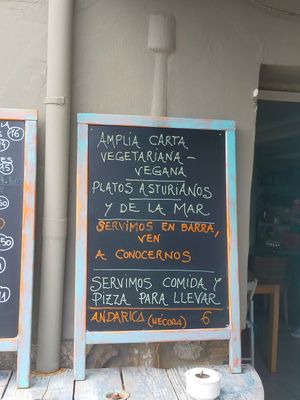 AMPLIA CARTA
VEGETARIANA -
VEGANA
PLATOS ASTURIANOS
Y DE LA MAR
SERVIMOS EN BARRA,
VEN
A CONOCERNOS
SERVIMOS COMIDA Y
PIZZA PARA LLEVAR
ANDARICA (NÉCORA) 6